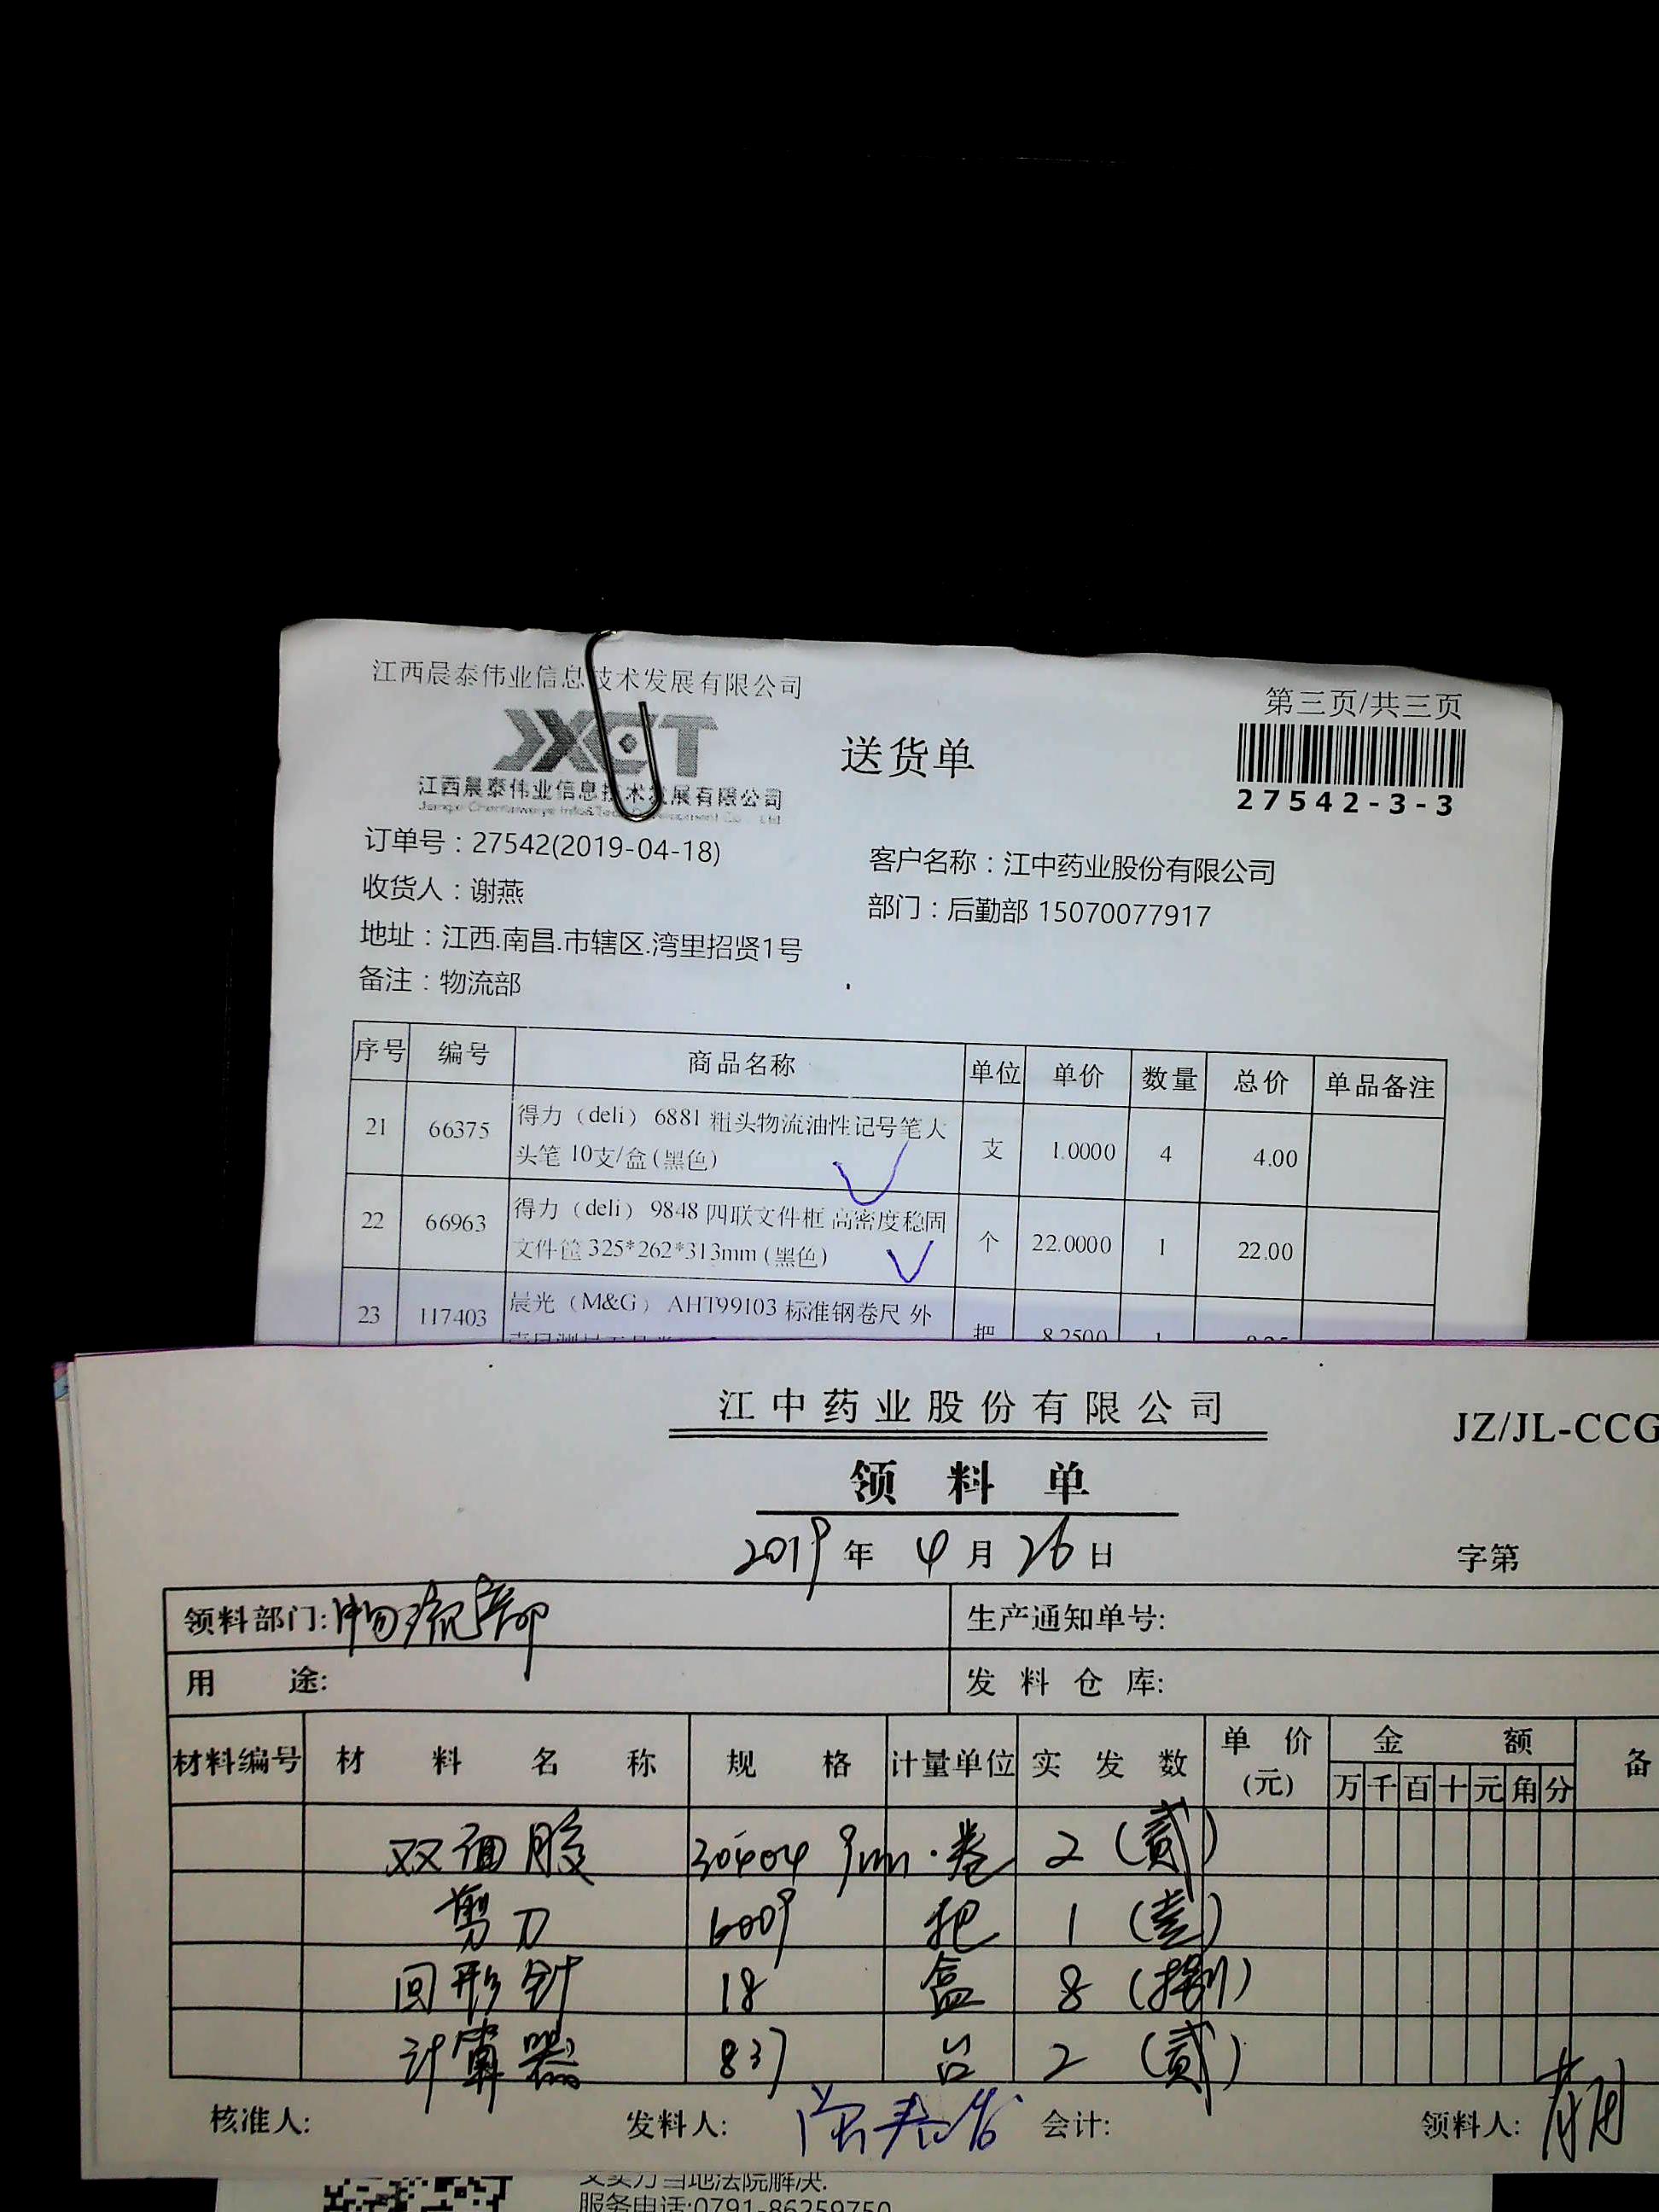 江西晨泰伟业信息技术发展有限公司
第三页/共三页
JXCT
送货单
江西晨泰伟业信息技术发展有限公司
27542-3-3
订单号：27542(2019-04-18)
客户名称：江中药业股份有限公司
收货人：谢燕
部门：后勤部 15070077917
地址：江西.南昌.市辖区.湾里招贤1号
备注：物流部
序号 编号 商品名称 单位 单价 数量 总价 单品备注
21 66375 得力（deli）6881 粗头物流油性记号笔大 支 1.0000 4 4.00
头笔 10支/盒(黑色)
22 66963 得力（deli）9848 四联文件框 高密度稳固 个 22.0000 1 22.00
文件筐 325*262*313mm(黑色)
23 117403 晨光（M&G）AHT99103 标准钢卷尺 外 把 8.2500 1
江中药业股份有限公司
JZ/JL-CCG
领料单
2019年4月26日
字第
领料部门:物流部
生产通知单号:
用途:
发料仓库:
材料编号 材料名称 规格 计量单位 实发数 单价(元) 金额 备
万 千 百 十 元 角 分
双面胶 30404 9mm 卷 2（贰）
剪刀 6009 把 1（壹）
回形针 18 盒 8（捌）
计算器 837 台 2（贰）
核准人: 发料人: 会计: 领料人:
服务电话:0791-86259750